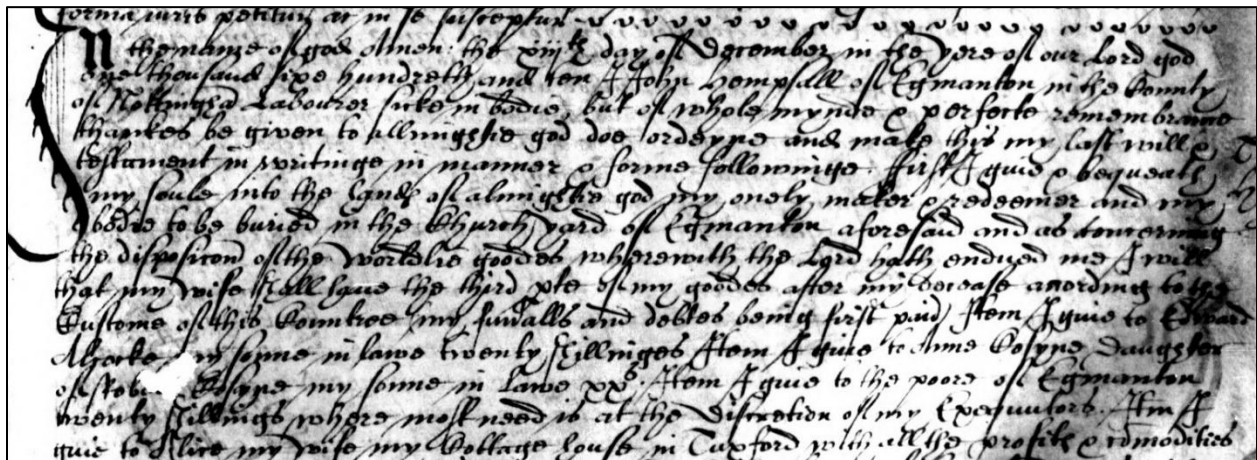 forma iuris petitur ac in se susceptur
In the name of god Amen the xiiijth day of December in the yere of our Lord god
one thousand sixe hundreth and ten I John Hempsall of Egmanton in the Kounty
of Nottingha Labourer sicke in bodie, but of whole mynde & perfecte remembrance
thankes be given to allmightie god doe ordeyne and make this my last will &
testament in writinge in manner & forme followinge. first I giue & bequeath
my soule into the hands of almightie god my onely maker & redeemer and my
bodie to be buried in the Church yard of Egmanton aforesaid and as concerning
the disposicon of the worldlie goodes wherewith the Lord hath endued me I will
that my wife shall haue the third pte of my goodes after my decease acording to the
Custome of this Kountree my funalls and debtes being first paid Item I giue to Edward
my sonne in lawe twenty shillinges Item I giue to Anne Cosyne daughter
of Cosyne my sonne in lawe xxs. Item I giue to the poore of Egmanton
twenty shillings where most need is at the discretion of my Exequutors. Itm I
giue to Alice my wife my Cottage house in Tuxford with all the profits & comodities